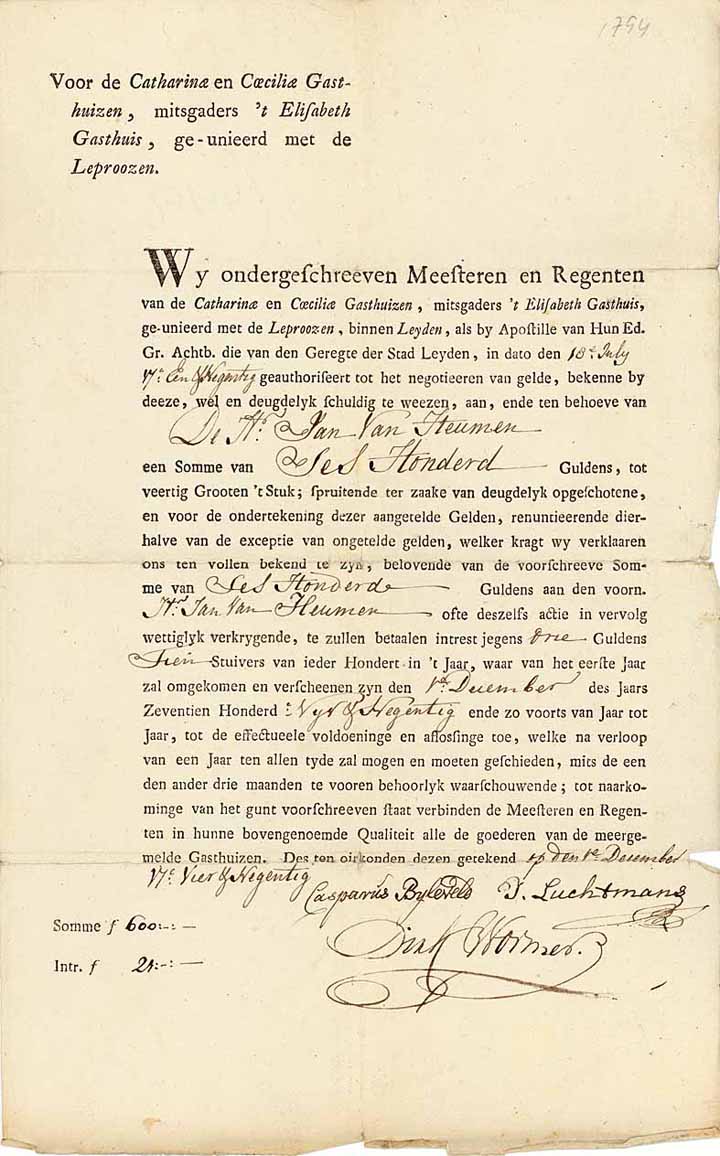 1794
Voor de Catharinæ en Cœciliæ Gast-
huizen, mitsgaders 't Eliſabeth
Gasthuis, ge-unieerd met de
Leproozen.
Wy ondergeſchreeven Meeſteren en Regenten
van de Catharinæ en Cœciliæ Gasthuizen, mitsgaders 't Eliſabeth Gasthuis,
ge-unieerd met de Leproozen, binnen Leyden, als by Apoſtille van Hun Ed.
Gr. Achtb. die van den Geregte der Stad Leyden, in dato den 18e. July
17c. Een & Negentig geauthoriſeert tot het negotieeren van gelde, bekenne by
deeze, wel en deugdelyk ſchuldig te weezen, aan, ende ten behoeve van
De Hr. Jan Van Heumen
een Somme van Ses Honderd Guldens, tot
veertig Grooten 't Stuk; ſpruitende ter zaake van deugdelyk opgeſchotene,
en voor de ondertekening dezer aangetelde Gelden, renuntieerende dier-
halve van de exceptie van ongetelde gelden, welker kragt wy verklaaren
ons ten vollen bekend te zyn, belovende van de voorſchreeve Som-
me van Ses Honderd Guldens aan den voorn.
Hr. Jan Van Heumen ofte deszelfs actie in vervolg
wettiglyk verkrygende, te zullen betaalen intrest jegens drie Guldens
Tien Stuivers van ieder Hondert in 't Jaar, waar van het eerſte Jaar
zal omgekomen en verſcheenen zyn den 1e. December des Jaars
Zeventien Honderd Vyf & Negentig ende zo voorts van Jaar tot
Jaar, tot de effectueele voldoeninge en afloſſinge toe, welke na verloop
van een Jaar ten allen tyde zal mogen en moeten geſchieden, mits de een
den ander drie maanden te vooren behoorlyk waarſchouwende; tot naarko-
minge van het gunt voorſchreeven ſtaat verbinden de Meeſteren en Regen-
ten in hunne bovengenoemde Qualiteit alle de goederen van de meerge-
melde Gasthuizen. Des ten oirkonden dezen getekend op den 1e. December
17c. Vier & Negentig
Casparus Byleveld J. Luchtmans
Somme f 600:-:-
Dirk Wormer.
Intr. f 21:-:-